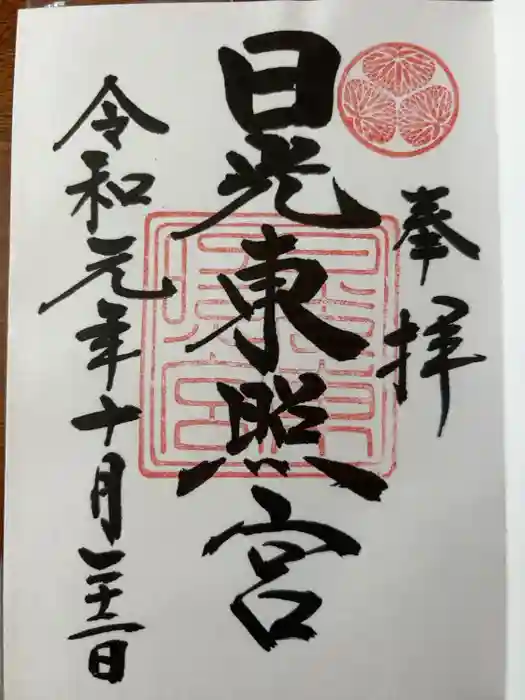 奉拝
日光東照宮
令和元年十月二十二日